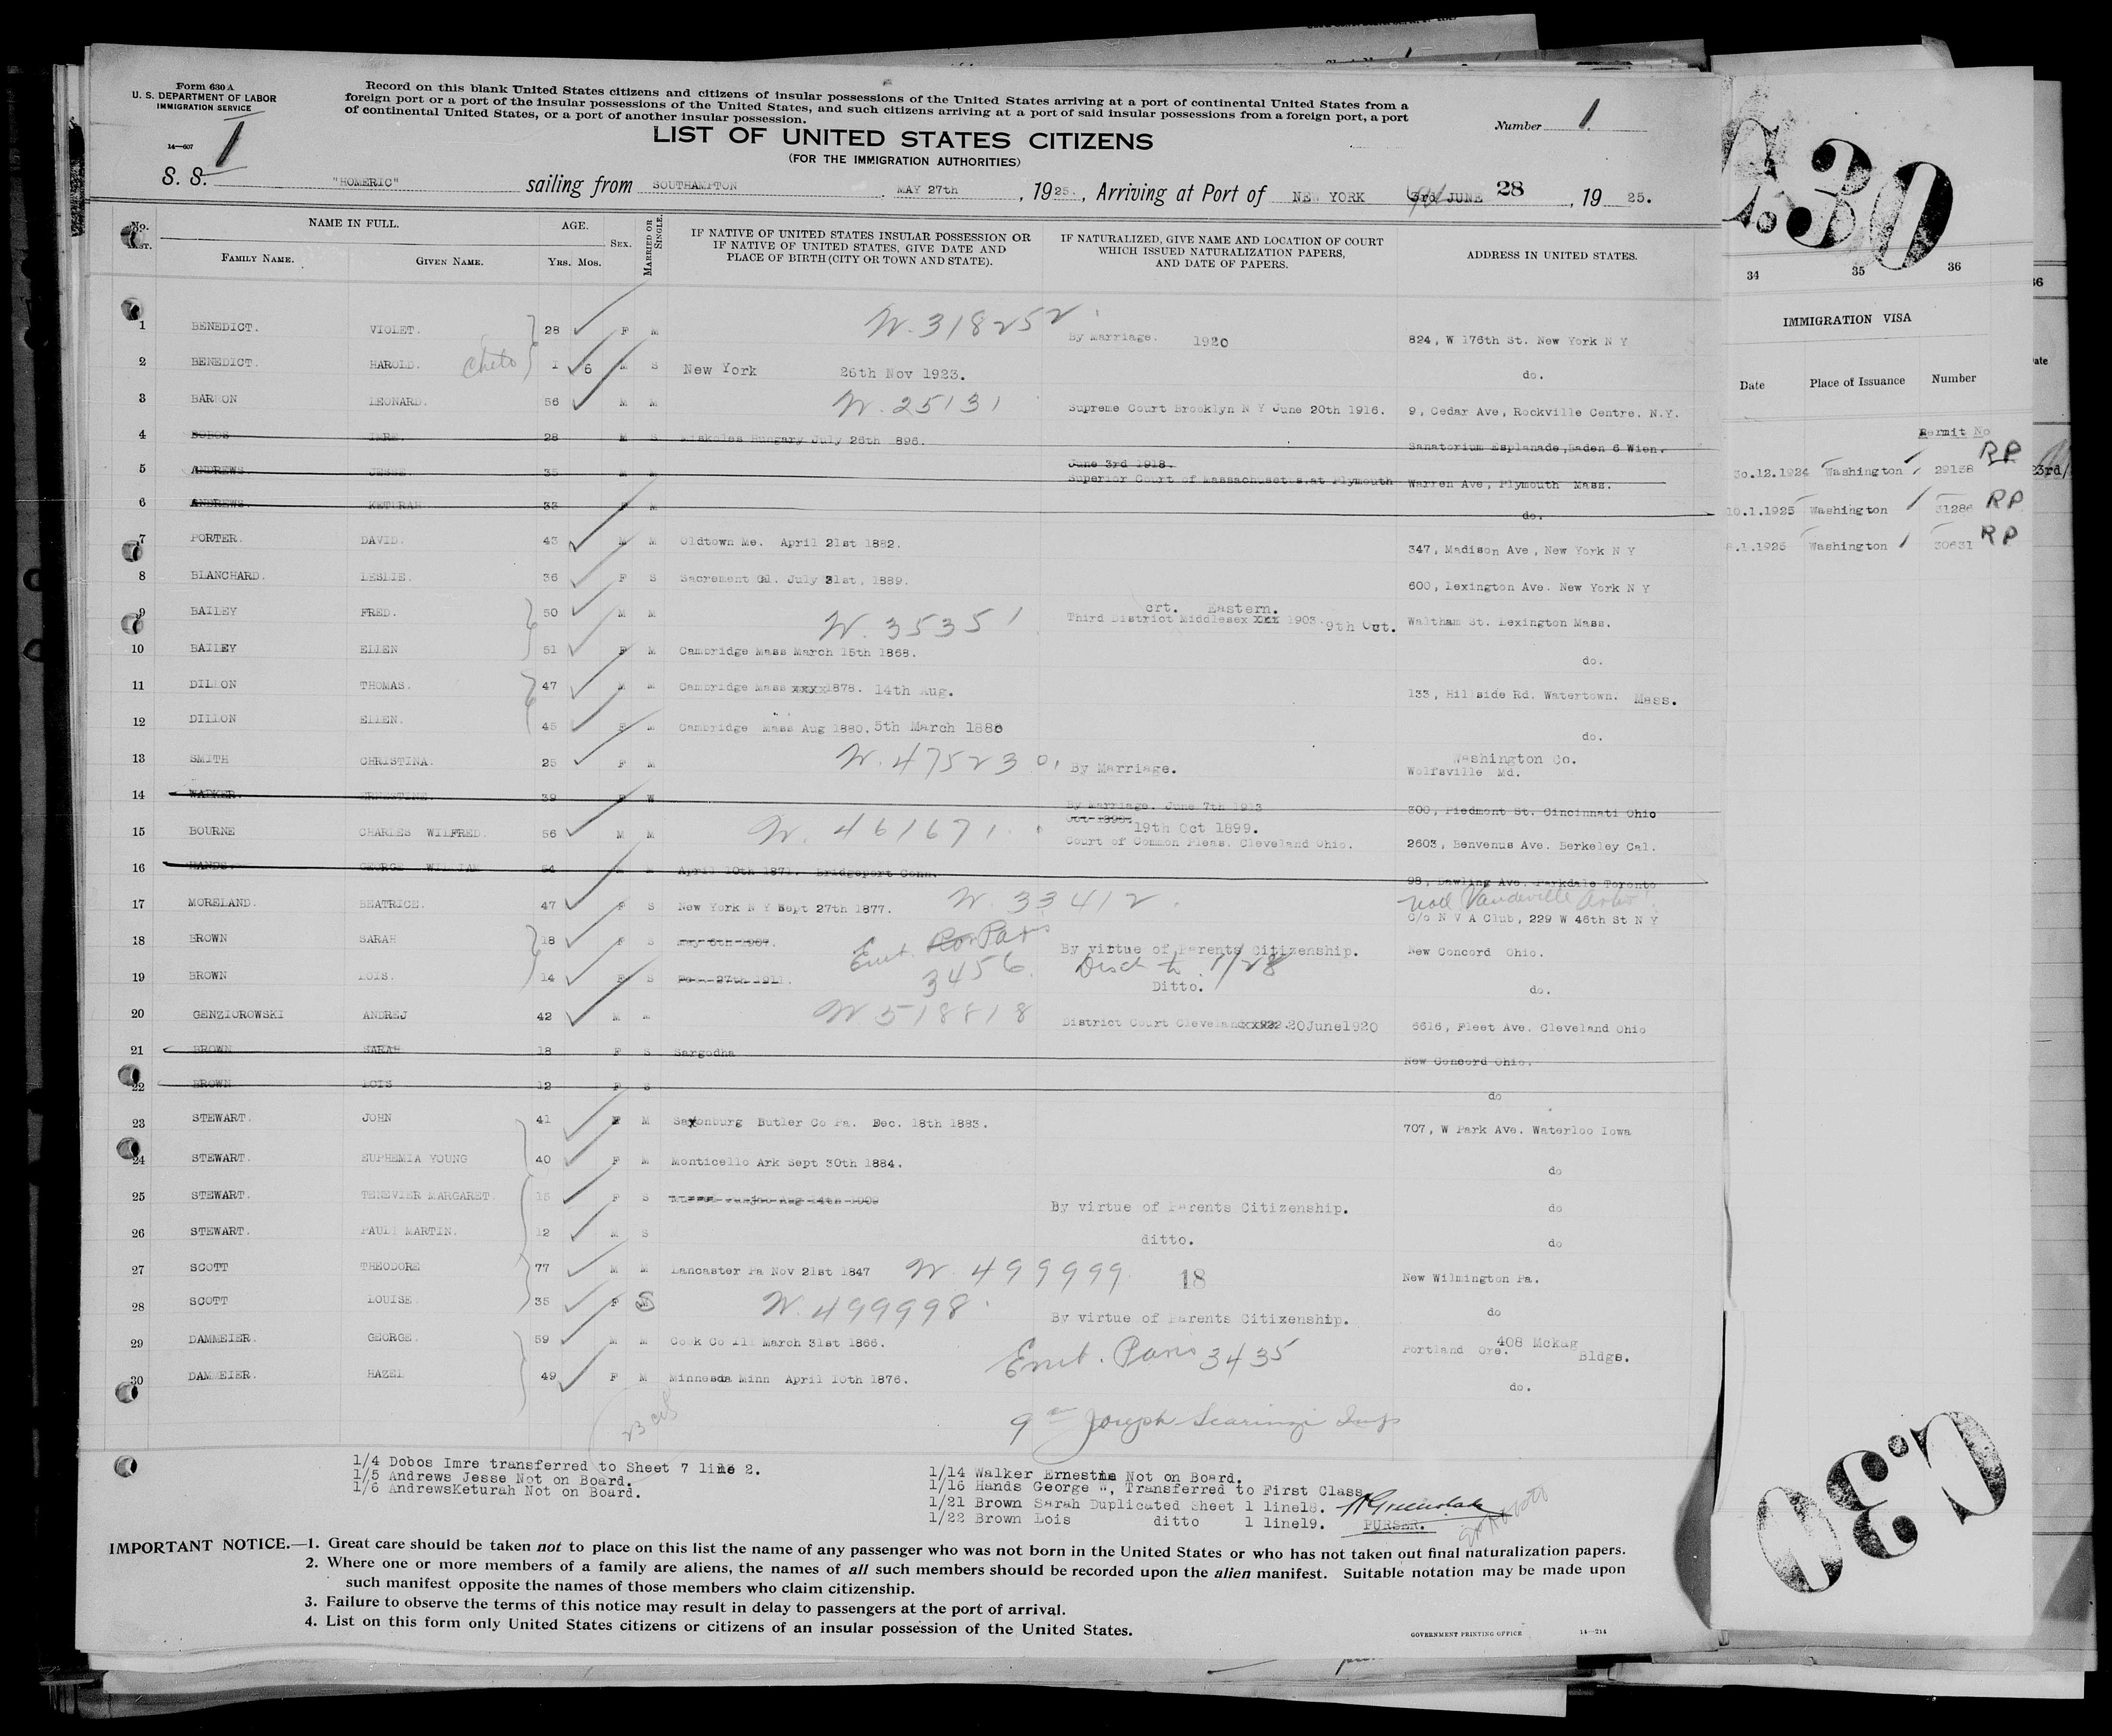 Form 630 A
U. S. DEPARTMENT OF LABOR
IMMIGRATION SERVICE
14—607
1
Record on this blank United States citizens and citizens of insular possessions of the United States arriving at a port of continental United States from a
foreign port or a port of the insular possessions of the United States, and such citizens arriving at a port of said insular possessions from a foreign port, a port
of continental United States, or a port of another insular possession.
Number 1.
LIST OF UNITED STATES CITIZENS
(FOR THE IMMIGRATION AUTHORITIES)
S. S. "HOMERIC" sailing from SOUTHAMPTON MAY 27th, 1925., Arriving at Port of NEW YORK 3rd JUNE 28, 19 25.
No. NAME IN FULL. AGE. SEX. MARRIED OR SINGLE. IF NATIVE OF UNITED STATES INSULAR POSSESSION OR IF NATIVE OF UNITED STATES, GIVE DATE AND PLACE OF BIRTH (CITY OR TOWN AND STATE). IF NATURALIZED, GIVE NAME AND LOCATION OF COURT WHICH ISSUED NATURALIZATION PAPERS, AND DATE OF PAPERS. ADDRESS IN UNITED STATES.
FAMILY NAME. GIVEN NAME. YRS. MOS.
1 BENEDICT. VIOLET. 28 F M W. 318252 By Marriage. 1920 824, W 176th St. New York N Y
2 BENEDICT. HAROLD. 1 6 M S New York 26th Nov 1923. do.
3 BARRON LEONARD. 56 M M W. 25131 Supreme Court Brooklyn N Y June 20th 1916. 9, Cedar Ave, Rockville Centre. N.Y.
4 DOBOS IMRE. 28 M S Miskoles Hungary July 26th 896. Sanatorium Esplanade, Baden 6 Wien.
5 ANDREWS. JESSE. 35 M M June 3rd 1918. Superior Court of Massachusetts.at Plymouth Warren Ave, Plymouth Mass.
6 ANDREWS. KETURAH 33 F M do.
7 PORTER. DAVID. 43 M M Oldtown Me. April 21st 1882. 347, Madison Ave, New York N Y
8 BLANCHARD. LESLIE. 36 F S Sacrement Cal. July 31st, 1889. 600, Lexington Ave. New York N Y
9 BAILEY FRED. 50 M M W. 35351 crt. Eastern. Third District Middlesex xxx 1903. 9th Oct. Waltham St. Lexington Mass.
10 BAILEY ELLEN 51 F M Cambridge Mass March 15th 1868. do.
11 DILLON THOMAS. 47 M M Cambridge Mass xxxx1878. 14th Aug. 133, Hillside Rd. Watertown. Mass.
12 DILLON ELLEN. 45 F M Cambridge Mass Aug 1880. 5th March 1880 do.
13 SMITH CHRISTINA. 25 F M W. 475230. By Marriage. Washington Co. Wolfsville Md.
14 WALKER. ERNESTINE. 39 F W By Marriage. June 7th 1913 300, Piedmont St. Cincinnati Ohio
15 BOURNE CHARLES WILFRED. 56 M M W. 461671. Oct 1898. 19th Oct 1899. Court of Common Pleas. Cleveland Ohio. 2603, Benvenus Ave. Berkeley Cal.
16 HANDS. GEORGE WILLIAM 54 M M April 10th 1871. Bridgeport Conn. 98, Dawling Ave. Parkdale Toronto
17 MORELAND. BEATRICE. 47 F S New York N Y Sept 27th 1877. W. 33412. Natl Vaudeville Artis C/o N V A Club, 229 W 46th St N Y
18 BROWN SARAH 18 F S May 6th 1907. Emb. Paris By virtue of Parents Citizenship. New Concord Ohio.
19 BROWN LOIS. 14 F S 27th 1911. 3456. 1/28 Ditto. do.
20 GENZIOROWSKI ANDREJ 42 M M W 518818 District Court Cleveland xx922. 20June1920 6616, Fleet Ave. Cleveland Ohio
21 BROWN SARAH 18 F S Sargodha New Concord Ohio.
22 BROWN LOIS 12 F S do
23 STEWART. JOHN 41 M Saxonburg Butler Co Pa. Dec. 18th 1883. 707, W Park Ave. Waterloo Iowa
24 STEWART. EUPHEMIA YOUNG 40 F M Monticello Ark Sept 30th 1884. do
25 STEWART. TENEVIER MARGARET. 15 F S Aug 14th 1909 By virtue of Parents Citizenship. do
26 STEWART. PAUL MARTIN. 12 M S ditto. do
27 SCOTT THEODORE 77 M M Lancaster Pa Nov 21st 1847 W. 499999. 18 New Wilmington Pa.
28 SCOTT LOUISE. 35 F S W. 499998. By virtue of Parents Citizenship. do
29 DAMMEIER. GEORGE. 59 M M Cook Co Ill March 31st 1866. Emb. Paris 3435 Portland Ore. 408 Mckag Bldgs.
30 DAMMEIER. HAZEL 49 F M Minnesda Minn April 10th 1876. do.
Joseph Scaringi
1/4 Dobos Imre transferred to Sheet 7 line 2.
1/5 Andrews Jesse Not on Board.
1/6 AndrewsKeturah Not on Board.
1/14 Walker Ernestine Not on Board.
1/16 Hands George W, Transferred to First Class
1/21 Brown Sarah Duplicated Sheet 1 line18.
1/22 Brown Lois ditto 1 line19.
PURSER.
IMPORTANT NOTICE.—1. Great care should be taken not to place on this list the name of any passenger who was not born in the United States or who has not taken out final naturalization papers.
2. Where one or more members of a family are aliens, the names of all such members should be recorded upon the alien manifest. Suitable notation may be made upon
such manifest opposite the names of those members who claim citizenship.
3. Failure to observe the terms of this notice may result in delay to passengers at the port of arrival.
4. List on this form only United States citizens or citizens of an insular possession of the United States.
GOVERNMENT PRINTING OFFICE 14—214
30
34 35 36
IMMIGRATION VISA
Date Place of Issuance Number
Permit No
30.12.1924 Washington 29158 RP 23rd
10.1.1925 Washington 31286 RP
8.1.1925 Washington 30631 RP
C.30